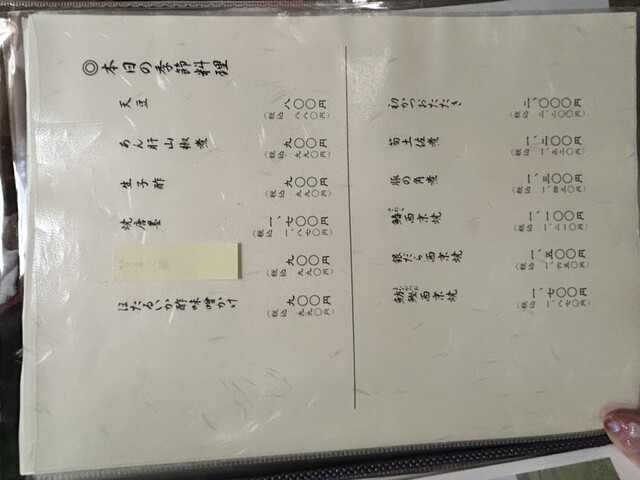 ◎本日の季節料理
天豆 八〇〇円
(税込 八八〇円)
あん肝山椒煮 九〇〇円
(税込 九九〇円)
生子酢 九〇〇円
(税込 九九〇円)
焼唐墨 一、七〇〇円
(税込 一、八七〇円)
九〇〇円
(税込 九九〇円)
ほたるいか酢味噌かけ 九〇〇円
(税込 九九〇円)
初かつおたたき 二、〇〇〇円
(税込 二、二〇〇円)
筍土佐煮 一、二〇〇円
(税込 一、三二〇円)
豚の角煮 一、三〇〇円
(税込 一、四三〇円)
鰆西京焼 一、一〇〇円
(税込 一、二一〇円)
銀だら西京焼 一、五〇〇円
(税込 一、六五〇円)
西京焼 一、七〇〇円
(税込 一、八七〇円)